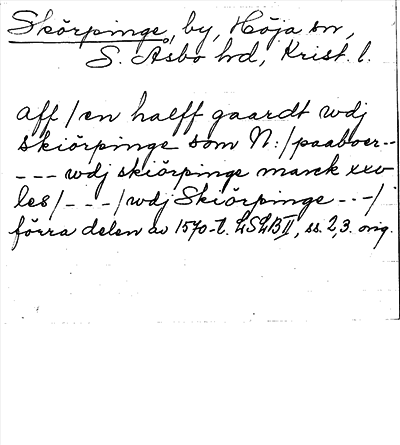 Skörpinge, by, Höja sn,
S. Åsbo hd, Krist. l.
aff / en halff gaardt wdj
skiörpinge som N: / paaboer --
--- wdj skiörpinge marck xxv
les / --- / wdj Skiörpinge --- /
förra delen av 1570-t. LSLB II, ss. 2, 3. orig.